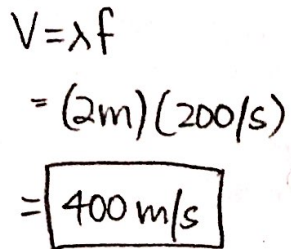 V=λf
= (2m)(200/s)
= 400 m/s